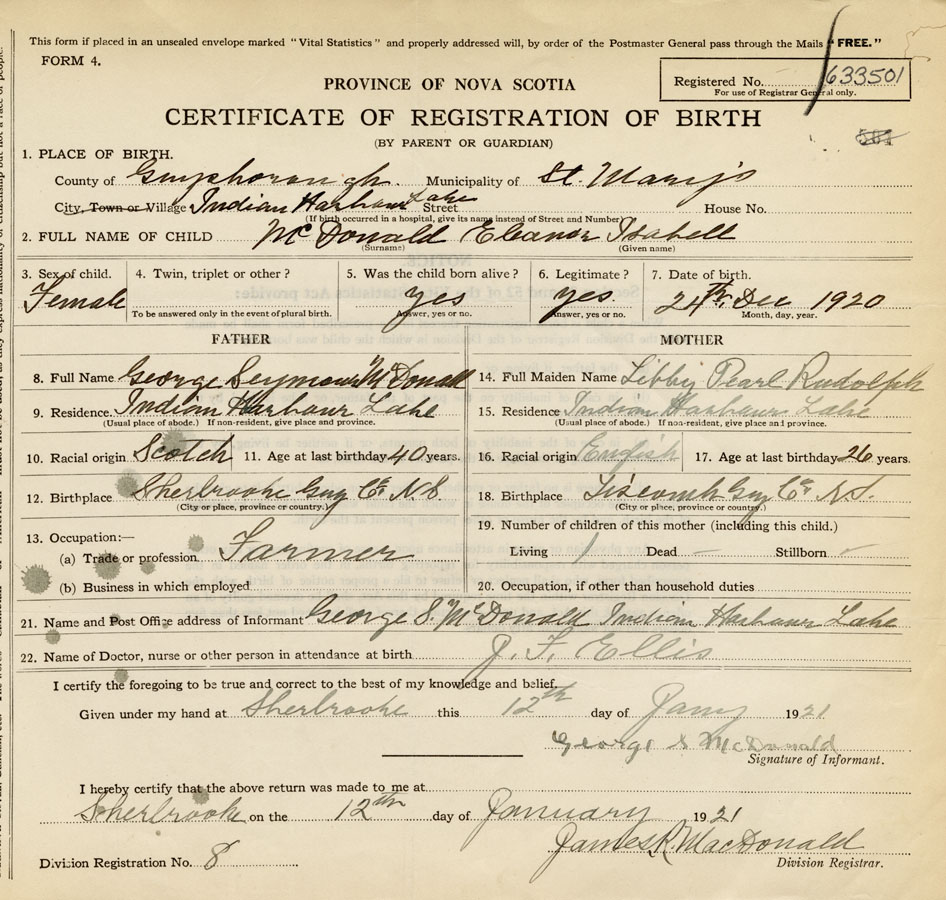 This form if placed in an unsealed envelope marked "Vital Statistics" and properly addressed will, by order of the Postmaster General pass through the Mails "FREE."
FORM 4.
PROVINCE OF NOVA SCOTIA
Registered No. 633501
For use of Registrar General only.
CERTIFICATE OF REGISTRATION OF BIRTH
(BY PARENT OR GUARDIAN)
584
1. PLACE OF BIRTH.
County of Guysborough. Municipality of St. Mary's
City, Town or Village Indian Harbour Lake Street House No.
(If birth occurred in a hospital, give its name instead of Street and Number)
2. FULL NAME OF CHILD McDonald Eleanor Isabell
(Surname) (Given name)
3. Sex of child. 4. Twin, triplet or other? 5. Was the child born alive? 6. Legitimate? 7. Date of birth.
Female yes yes. 24th Dec 1920
To be answered only in the event of plural birth. Answer, yes or no. Answer, yes or no. Month, day, year.
FATHER MOTHER
8. Full Name George Seymour McDonald 14. Full Maiden Name Libbiy Pearl Rudolph
9. Residence. Indian Harbour Lake 15. Residence Indian Harbour Lake
(Usual place of abode.) If non-resident, give place and province. (Usual place of abode.) If non-resident, give place and province.
10. Racial origin Scotch 11. Age at last birthday 40 years. 16. Racial origin English 17. Age at last birthday 26 years.
12. Birthplace Sherbrooke Guy Co. N S 18. Birthplace Liscomb Guy Co. N.S.
(City or place, province or country.) (City or place, province or country.)
13. Occupation:— 19. Number of children of this mother (including this child.)
(a) Trade or profession Farmer Living 1 Dead — Stillborn
(b) Business in which employed 20. Occupation, if other than household duties
21. Name and Post Office address of Informant George S. McDonald Indian Harbour Lake
22. Name of Doctor, nurse or other person in attendance at birth J. F. Ellis
I certify the foregoing to be true and correct to the best of my knowledge and belief.
Given under my hand at Sherbrooke this 12th day of Jany 1921
George S McDonald
Signature of Informant.
I hereby certify that the above return was made to me at
Sherbrooke on the 12th day of January 1921
James R. MacDonald
Division Registration No. 8 Division Registrar.